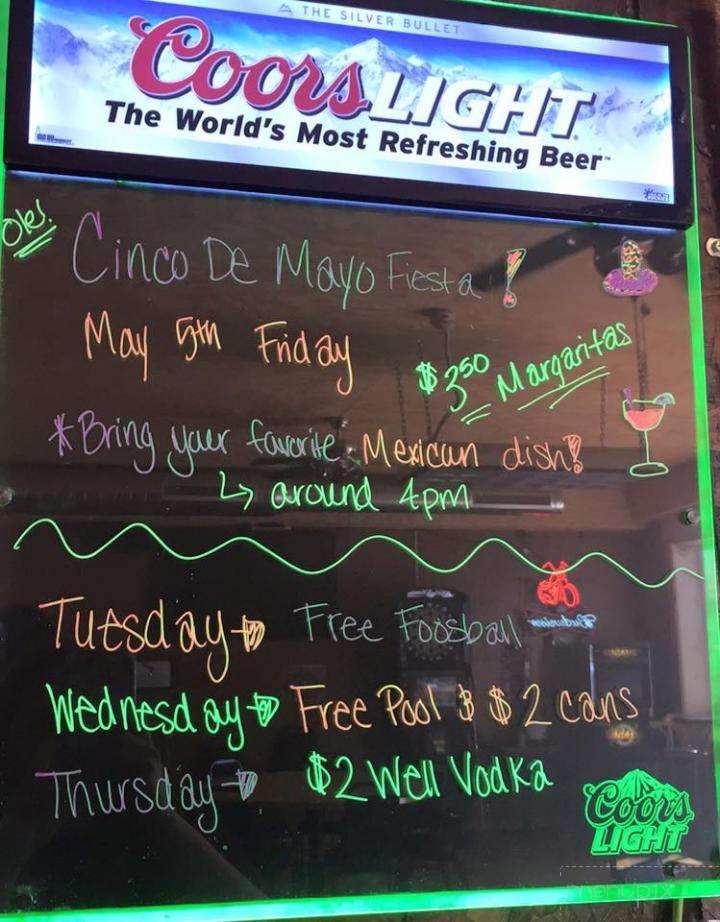 THE SILVER BULLET
Coors LIGHT
The World's Most Refreshing Beer™
Ole!
Cinco De Mayo Fiesta!
May 5th Friday
$3.50 Margaritas
*Bring your favorite Mexican dish!
↳ around 4pm
Tuesday → Free Foosball
Budweiser
Wednesday → Free Pool & $2 cans
Thursday → $2 Well Vodka
Coors
LIGHT